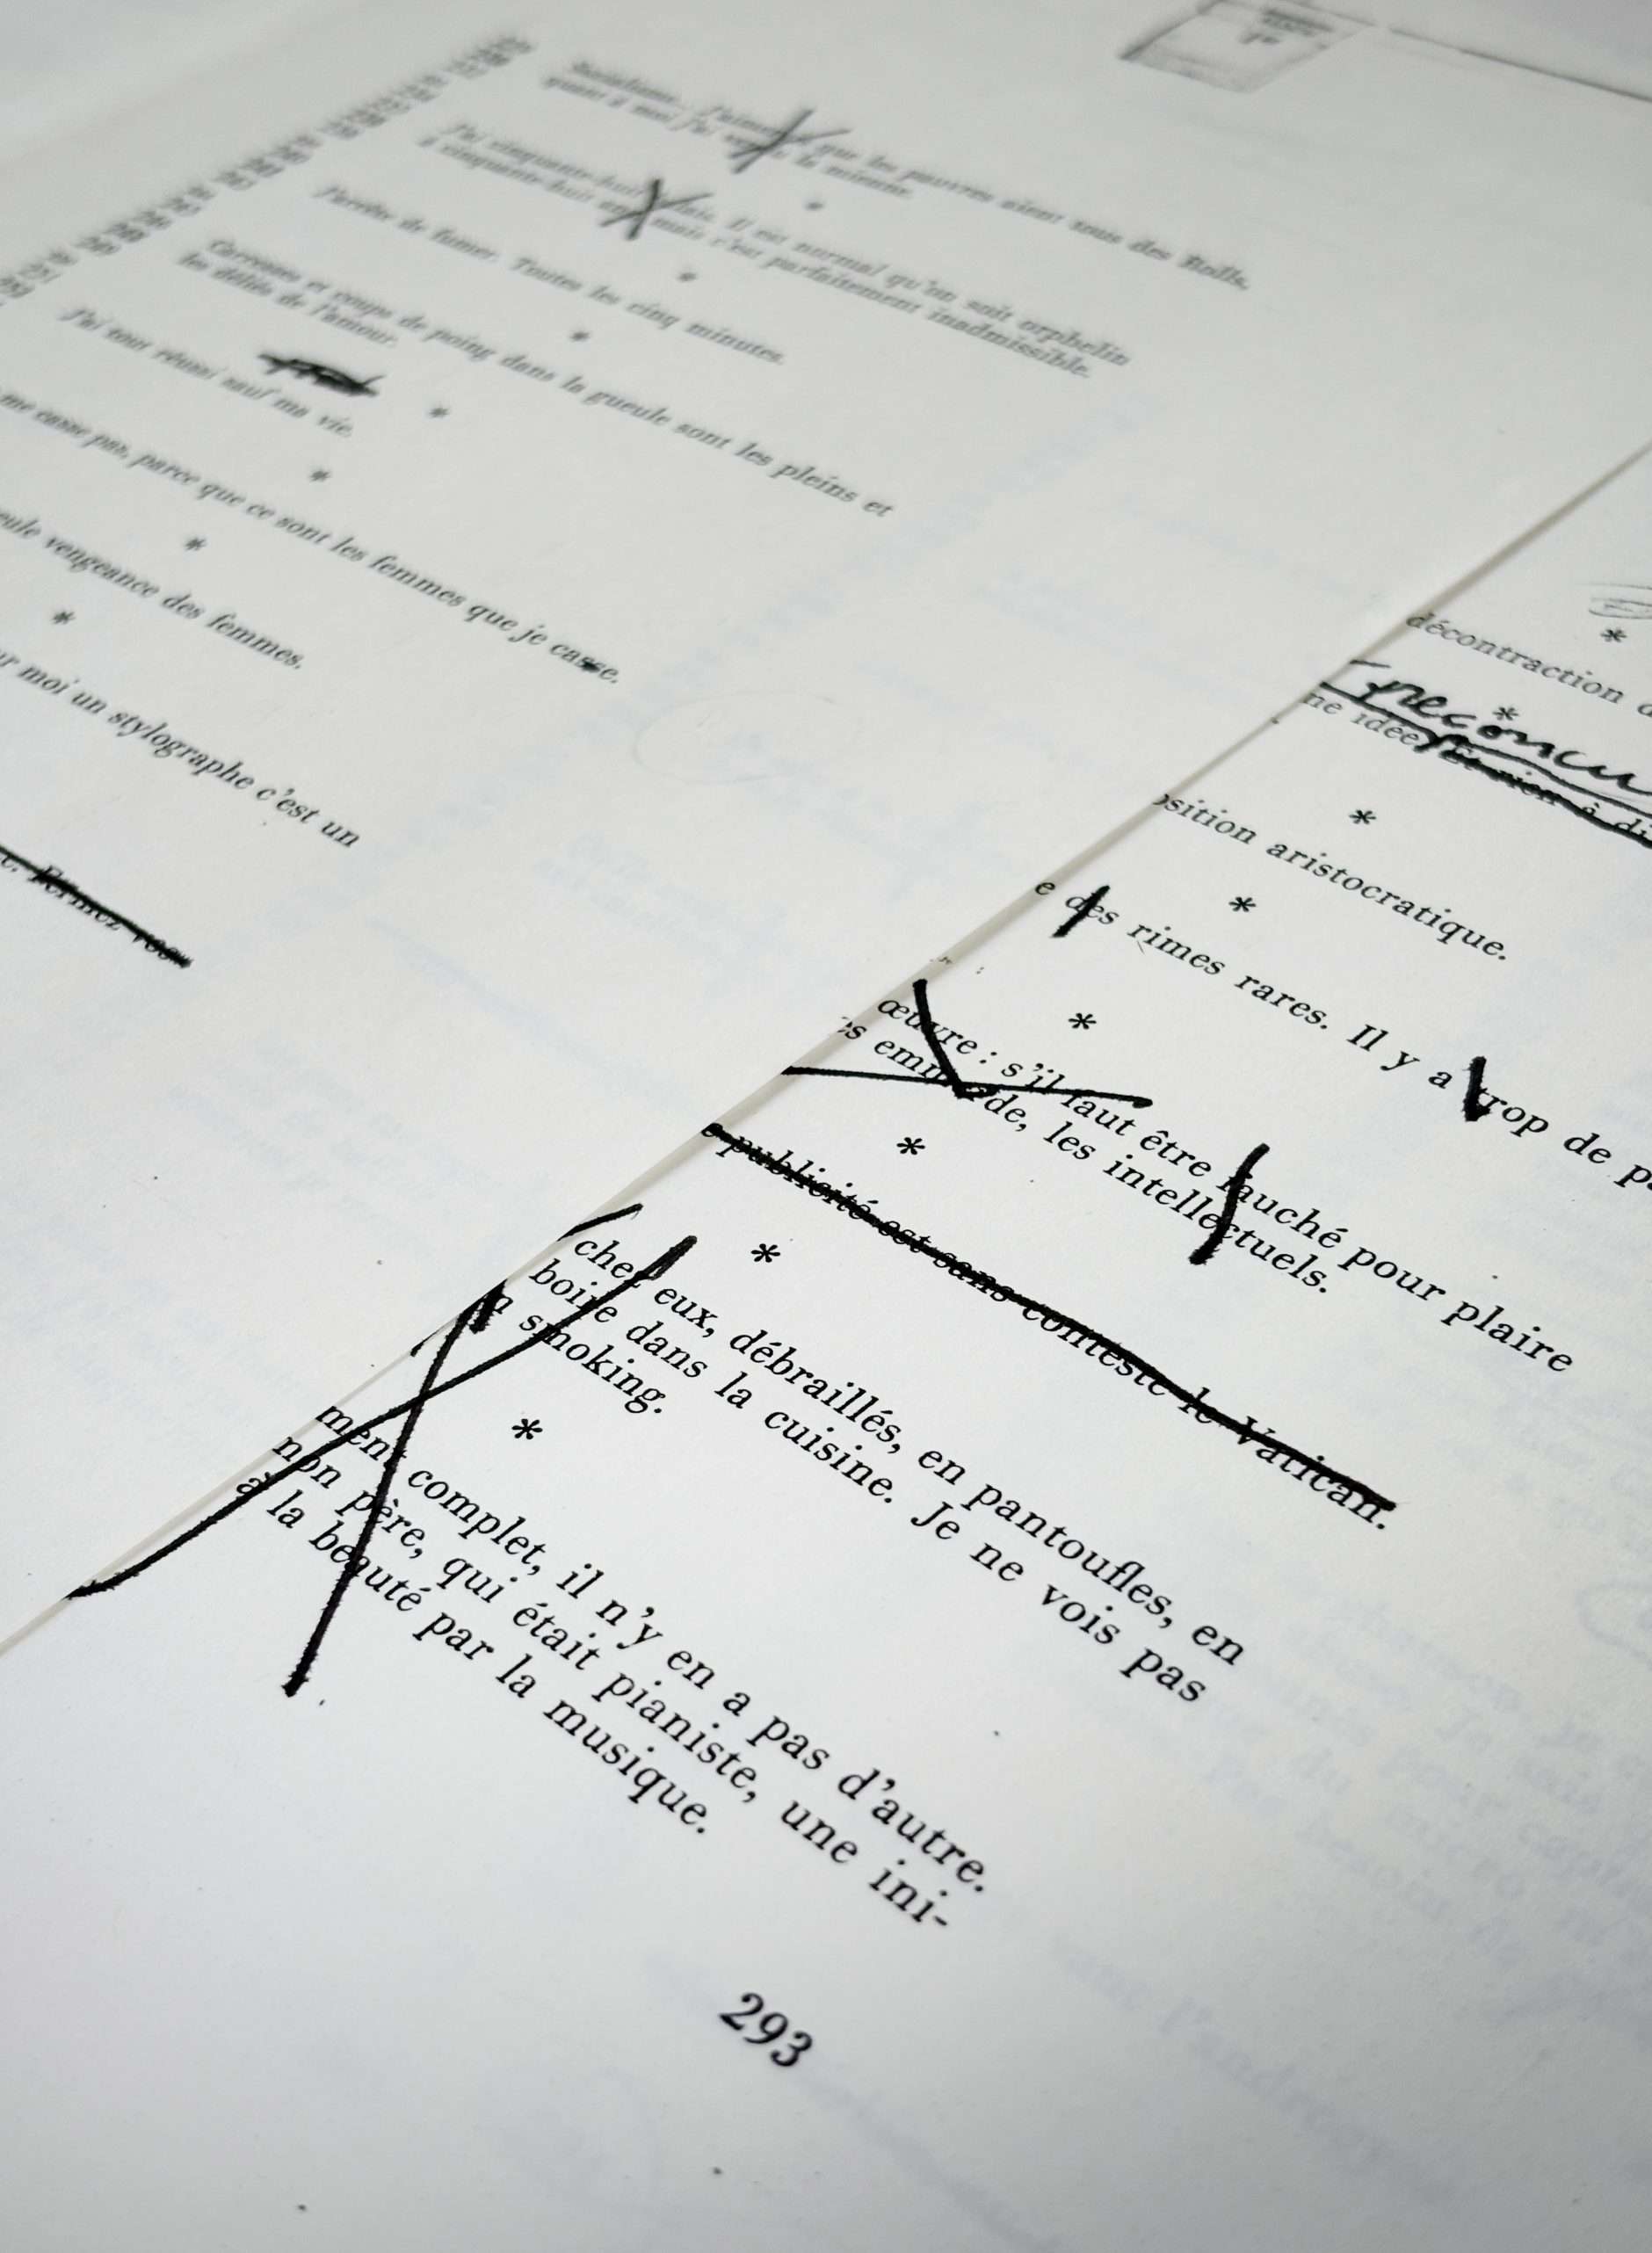 J'aime que les pauvres aient tous des Rolls,
quant à moi j'ai la mienne.
*
J'ai cinquante-huit Il est normal qu'on soit orphelin
à cinquante-huit ans mais c'est parfaitement inadmissible.
*
J'arrête de fumer. Toutes les cinq minutes.
*
Caresses et coups de poing dans la gueule sont les pleins et
les déliés de l'amour.
*
J'ai tout réussi sauf ma vie.
*
me casse pas, parce que ce sont les femmes que je casse.
*
eule vengeance des femmes.
*
moi un stylographe c'est un
Fermez
*
décontraction
*
ne idée
*
sition aristocratique.
*
e des rimes rares. Il y a trop de
*
œuvre : s'il faut être fauché pour plaire
s emmerde, les intellectuels.
*
e publicité est sans conteste le Vatican.
*
chez eux, débraillés, en pantoufles, en
boire dans la cuisine. Je ne vois pas
n smoking.
*
ment complet, il n'y en a pas d'autre.
non père, qui était pianiste, une ini-
à la beauté par la musique.
293